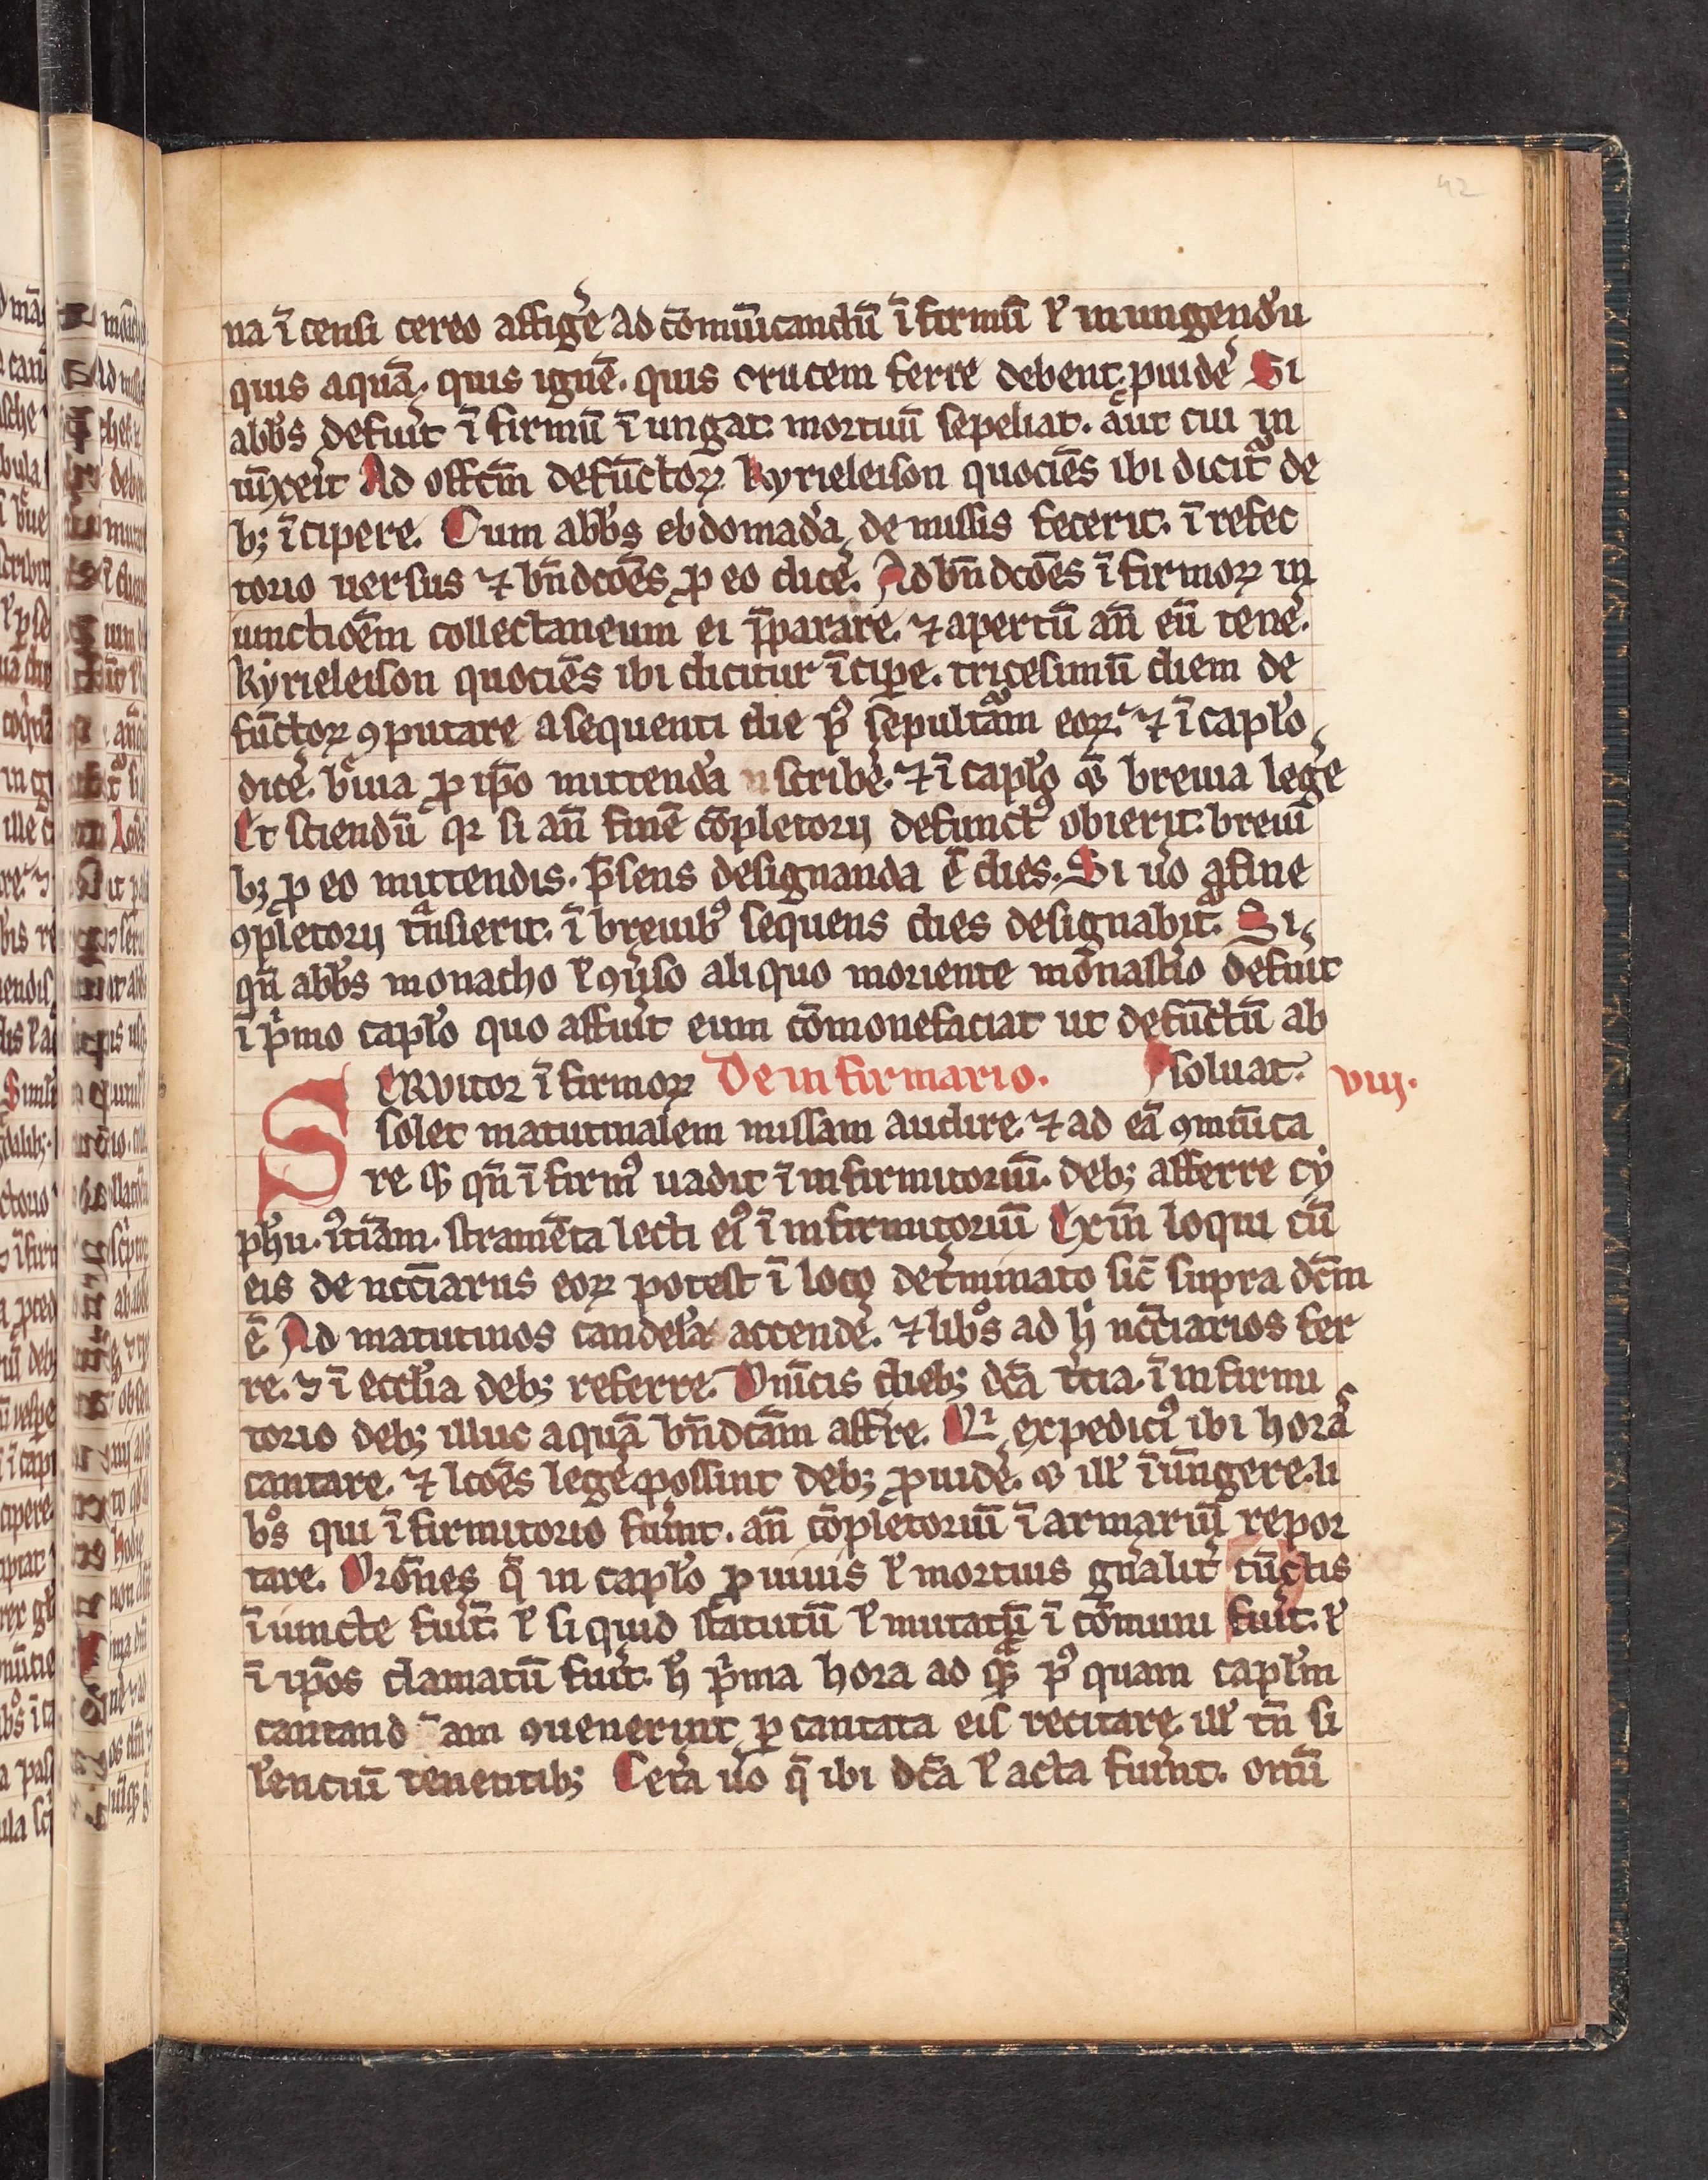 42
na ī censi cereo affig̾e ad cōmūicandū ī firmū ł inungendū
quis aquā. quis ignē. quis crucem ferre debent. ꝓuide̾ Si
abb̄s defuit̾ ī firmū ī ungat. mortuū sepeliat. aut cui in
iūxerit Ad offcm̄ defūctoꝝ kyrieleison quociēs ibi dicit᷑ de
bꝫ īcipere. Cum abb̄s ebdomada̾ de missis fecerit. ī refec
torio uersus ⁊ bn̄dcōēs ꝓ eo dice̾. Ad bn̄dcōēs ī firmoꝝ in
unctiōēm collectaneum ei p̄parare. ⁊ apertū an̄ eū tene̾.
kyrieleison quociēs ibi dicitur īciꝑe. tricesimū diem de
fūctoꝝ ꝯputare a sequenti die pꝰ sepultᷓam eoꝝ. ⁊ ī capło
dice̾. b̾uia ꝓ ip̄o mittenda scribe̾. ⁊ ī capło qͦ breuia leg̾e
Et sciendū qꝛ si an̄ finē cōpletorij defunctꝰ obierit. breuiī
bꝫ ꝓ eo mittendis. p̄sens designanda ē dies. Si ūo a fine
ꝯpletorij tᷓnsierit. ī breuibꝰ sequens dies designabit᷑. Si
qn̄ abb̄s monacho ł ꝯu̾so aliquo moriente monast̾io defuit
ī pͥmo capło quo affuit̾ eum cōmonefaciat ut defūctū ab
SERVITOR ī firmoꝝ De infirmario. soluat. viij.
solet matutinalem missam audire. ⁊ ad eā ꝯmūica
re qn̄ ī firmꝰ uadit ī infirmitoriū. debꝫ afferre cy
phū. iustitiam. stramēta lecti eiꝰ ī infirmitoriū Exin̄ loqui cū
eis de nccīariis eoꝝ potest ī loco det̾minato sic̄ supra dcm̄
ē Ad matutinos candela accende̾. ⁊ libͦs ad h̾ nccīarios fer
re. ⁊ ī ecclia debꝫ referre. Dn̄icis diebꝫ dcā t̾cia ī infirmi
torio debꝫ illuc aquā bn̄dcām aff̾re. Vt expediciꝰ ibi hora̾
cantare. ⁊ lcōēs leg̾e possint debꝫ ꝓuide̾. ił īiūngere. li
bͦs qui ī firmitorio fuer̾nt. an̄ cōpletoriū ī armariū repor
tare. Orōnes q̄ in capło ꝓ uiuis ł mortuis gn̄alit̾ cūctis
ī iuncte fuer̄. ł si quid statutū ł mutatū ī cōmuni fuit̾. ł
ī ip̄os clamatū fuit̾. h̾ pͥma hora ad pꝰ quam capłm
cantand am ꝯuenerint ꝑ cantata eis recitare. ił tn̄ si
lenciū tenentibꝫ Cet̾a ūo q̄ ibi dcā ł acta fuer̾nt. om̄i